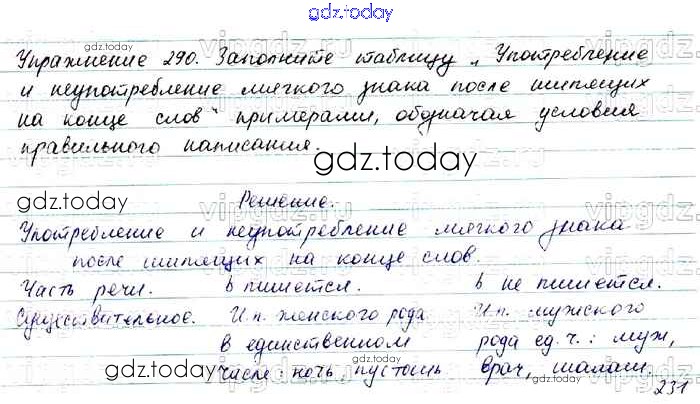 gdz.today
Упражнение 290. Заполните таблицу „Употребление
и неупотребление мягкого знака после шипящих
на конце слов" примерами, обозначая условия
правильного написания.
gdz.today
gdz.today
gdz.today
Решение.
Употребление и неупотребление мягкого знака
после шипящих на конце слов.
Часть речи. ь пишется. ь не пишется.
gdz.today
Существительное. И.п. женского рода И.п. мужского
в единственном рода ед.ч.: муж,
числе: ночь, пустошь врач, шалаш.
gdz.today
gdz.today
231